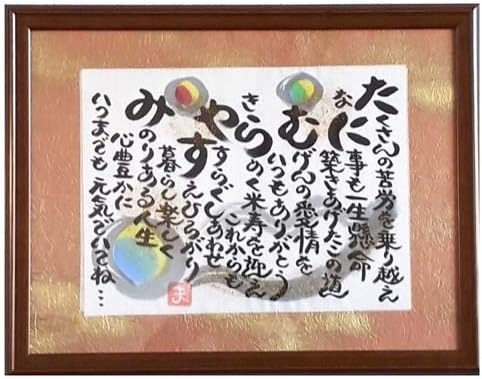 たくさんの苦労を乗り越え
なに事も一生懸命
築きあげたこの道
むげんの愛情を
いつもありがとう
きらめく米寿を迎え
これからも
やすらぐしあわせ
すえひろがり
暮らし楽しく
みのりある人生
心豊かに
いつまでも元気でいてね…